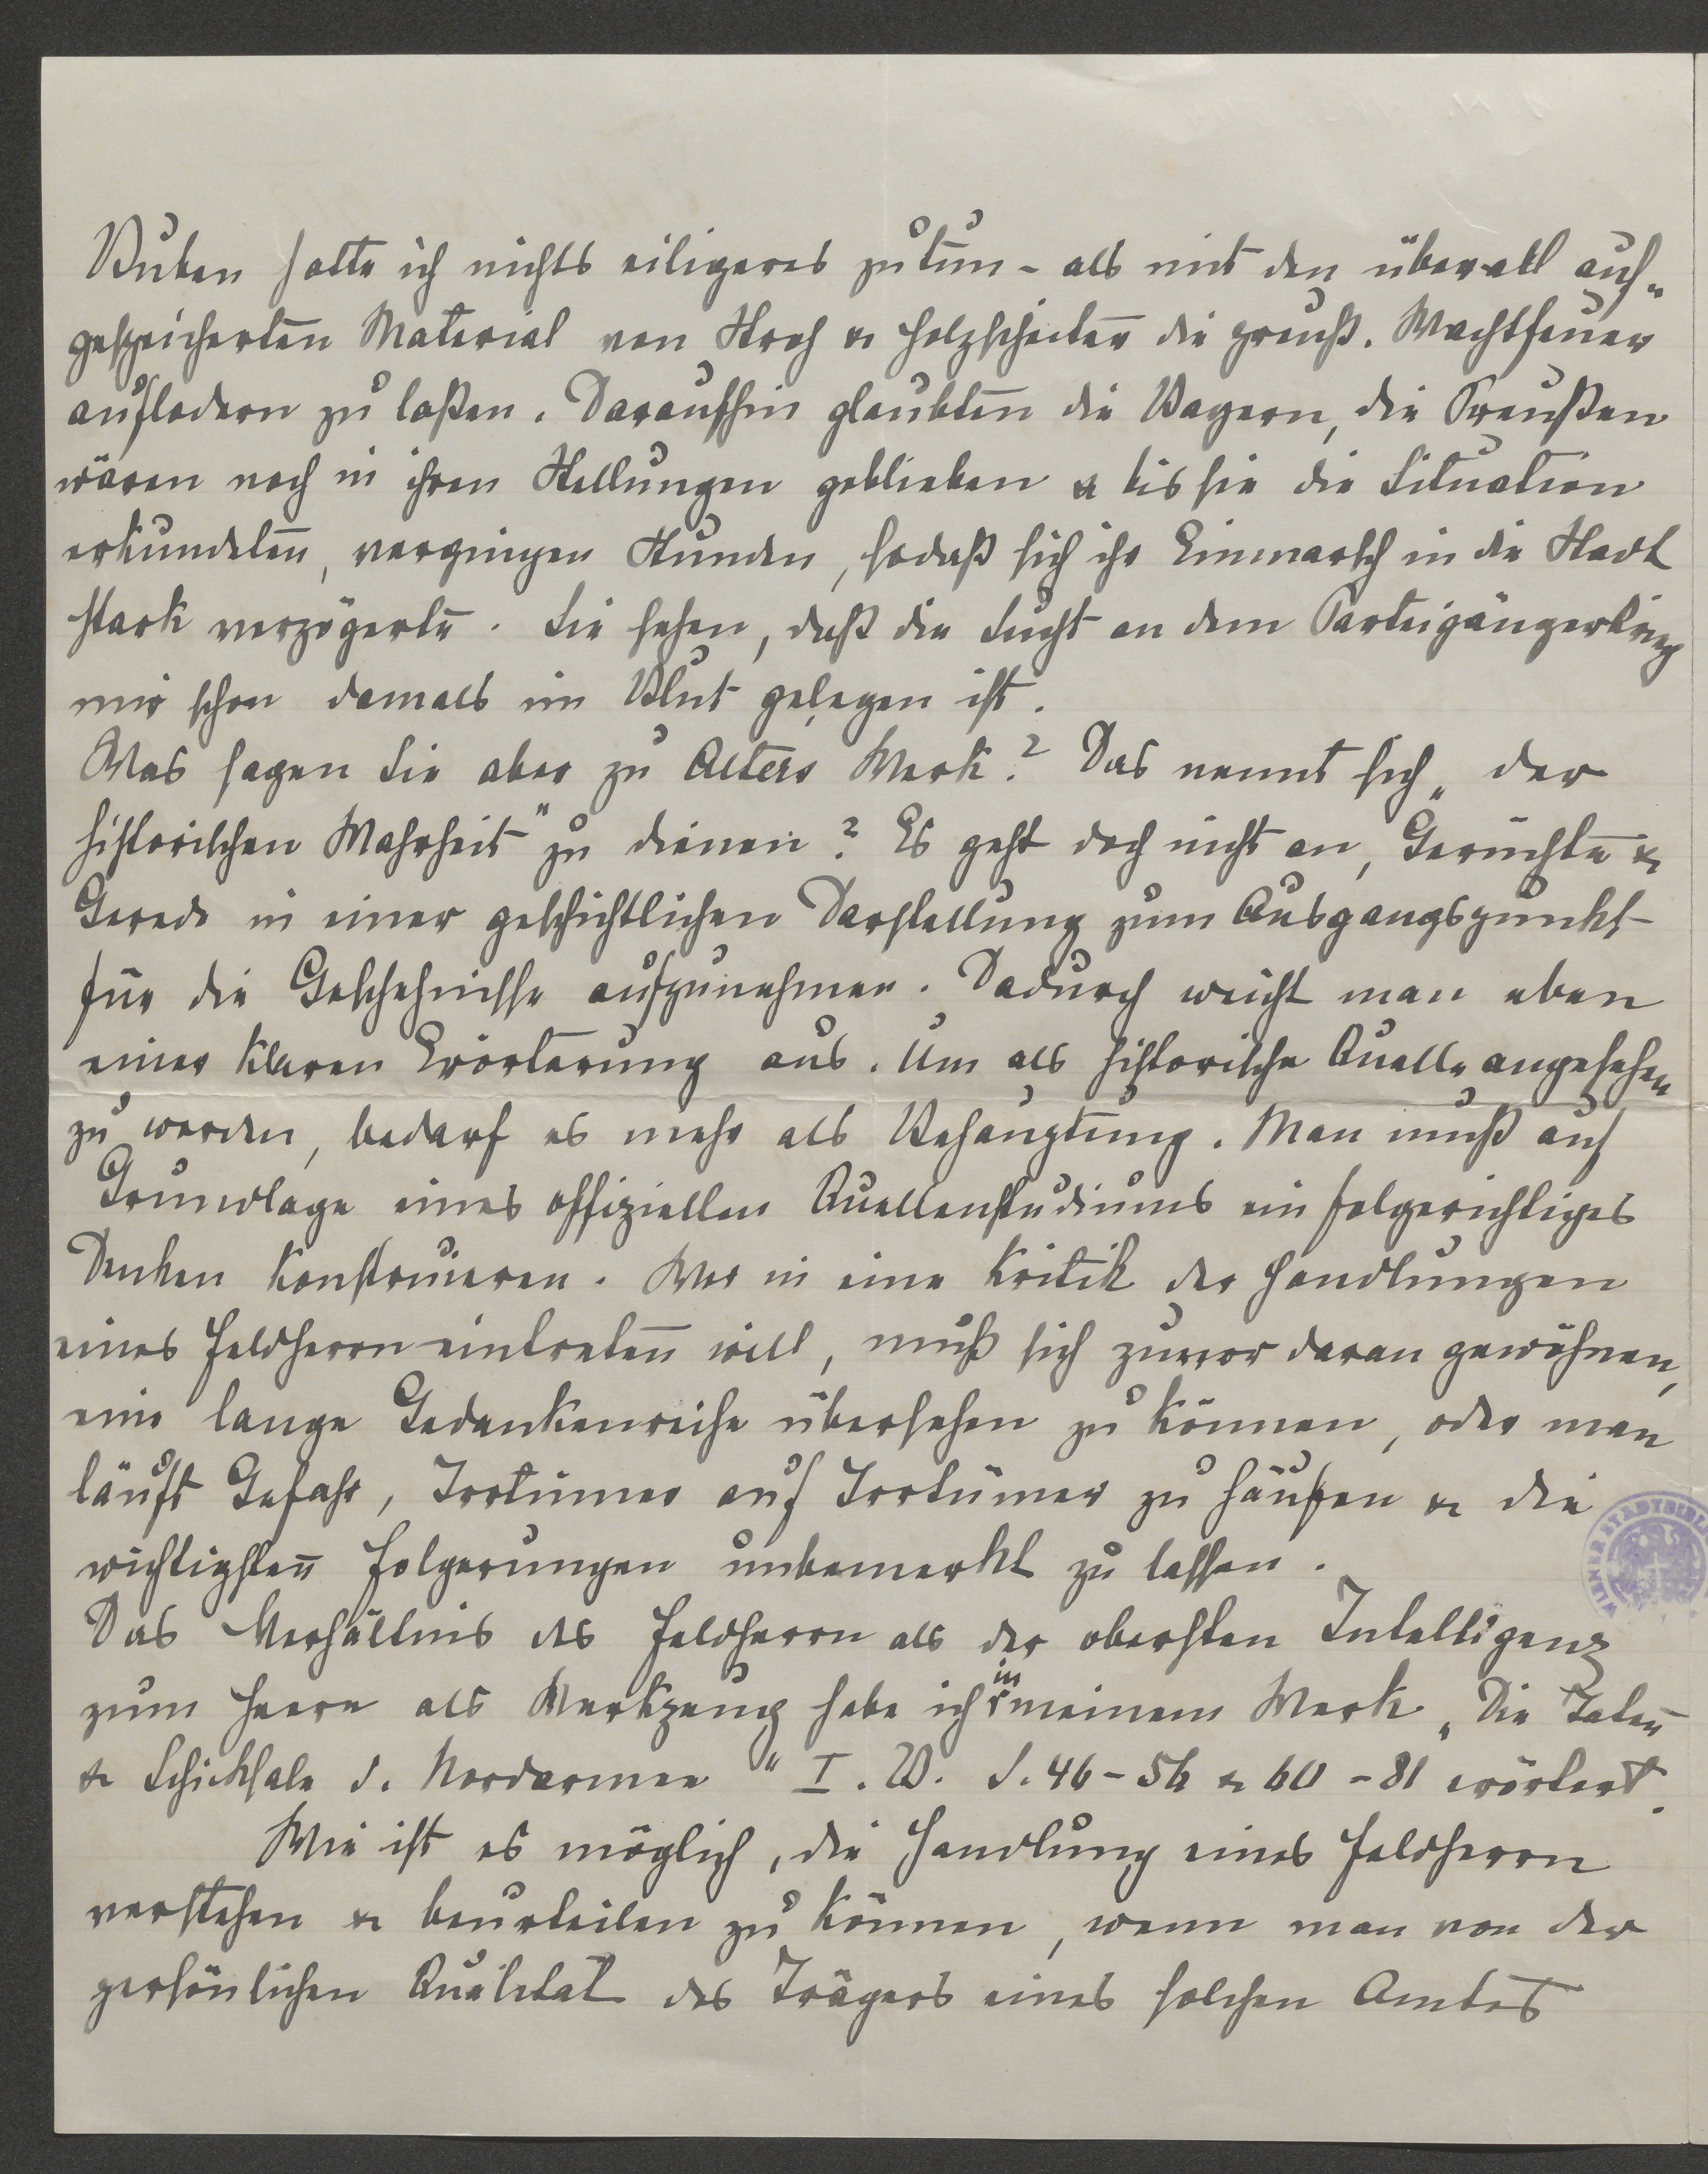 Buben hatte ich nichts eiligeres zu tun - als mit den überall auf„
gespeicherten Material von Stroh & Holzscheiten die preuß. Wachtfeuer
auflodern zu laßen. Daraufhin glaubten die Bayern, die Preußen
wären noch in ihren Stellungen geblieben & bis sie die Situation
erkundeten, vergingen Stunden, sodaß sich ihr Einmarsch in die Stadt
stark verzögerte. Sie sehen, daß die Sucht an dem Parteigängerkrieg
mir schon damals im Blut gelegen ist.
Was sagen Sie aber zu Alters Werk? Das nennt sich „der
historischen Wahrheit" zu dienen? Es geht doch nicht an, Gerüchte &
Gerede in einer geschichtlichen Darstellung zum Ausgangspunkt
für die Geschehnisse aufzunehmen. Dadurch weicht man eben
einer klaren Erörterung aus. Um als historische Quelle angesehen
zu werden, bedarf es mehr als Behauptung. Man muß auf
Grundlage eines offiziellen Quellenstudiums ein folgerichtiges
Denken konstruieren. Wer in eine Kritik der Handlungen
eines Feldherrn eintreten will, muß sich zuvor daran gewöhnen,
eine lange Gedankenreihe übersehen zu können, oder man
läuft Gefahr, Irrtümer auf Irrtümer zu häufen & die
wichtigsten Folgerungen unbemerkt zu lassen.
Das Verhältnis des Feldherrn als der obersten Intelligenz
zum Heere als Werkzeug habe ich in meinem Werk „Die Taten
& Schicksale d. Nordarmee" I. B. S. 46-56 & 60-81 erörtert.
Wie ist es möglich, die Handlung eines Feldherrn
verstehen & beurteilen zu können, wenn man von der
persönlichen Qualität des Trägers eines solchen Amtes